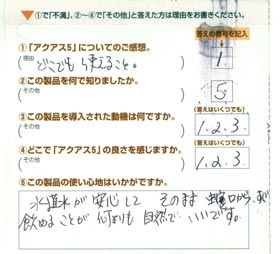 ▼①で「不満」、②～④で「その他」と答えた方は理由をお書きください。
答えの番号を記入
①「アクアス5」についてのご感想。
理由 どこでも使えること。
1
②この製品を何で知りましたか。
その他
5
③この製品を導入された動機は何ですか。
答えはいくつでも
その他
1.2.3.
④どこで「アクアス5」の良さを感じますか。
答えはいくつでも
その他
1.2.3.
⑤この製品の使い心地はいかがですか。
水道水が安心して そのまま 蛇口から
飲めることが何よりも自然でいいです。